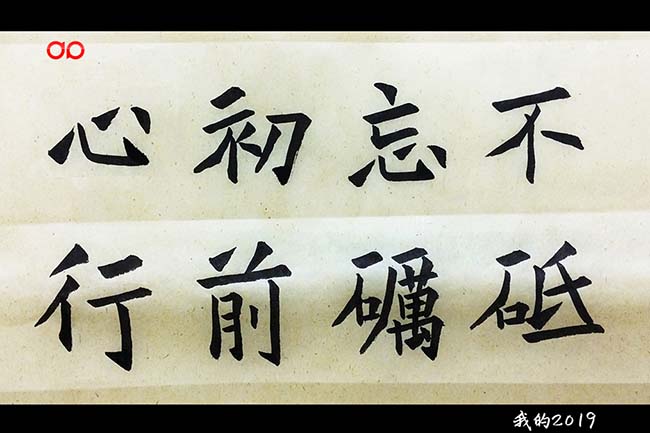 不忘初心
砥礪前行
我的2019